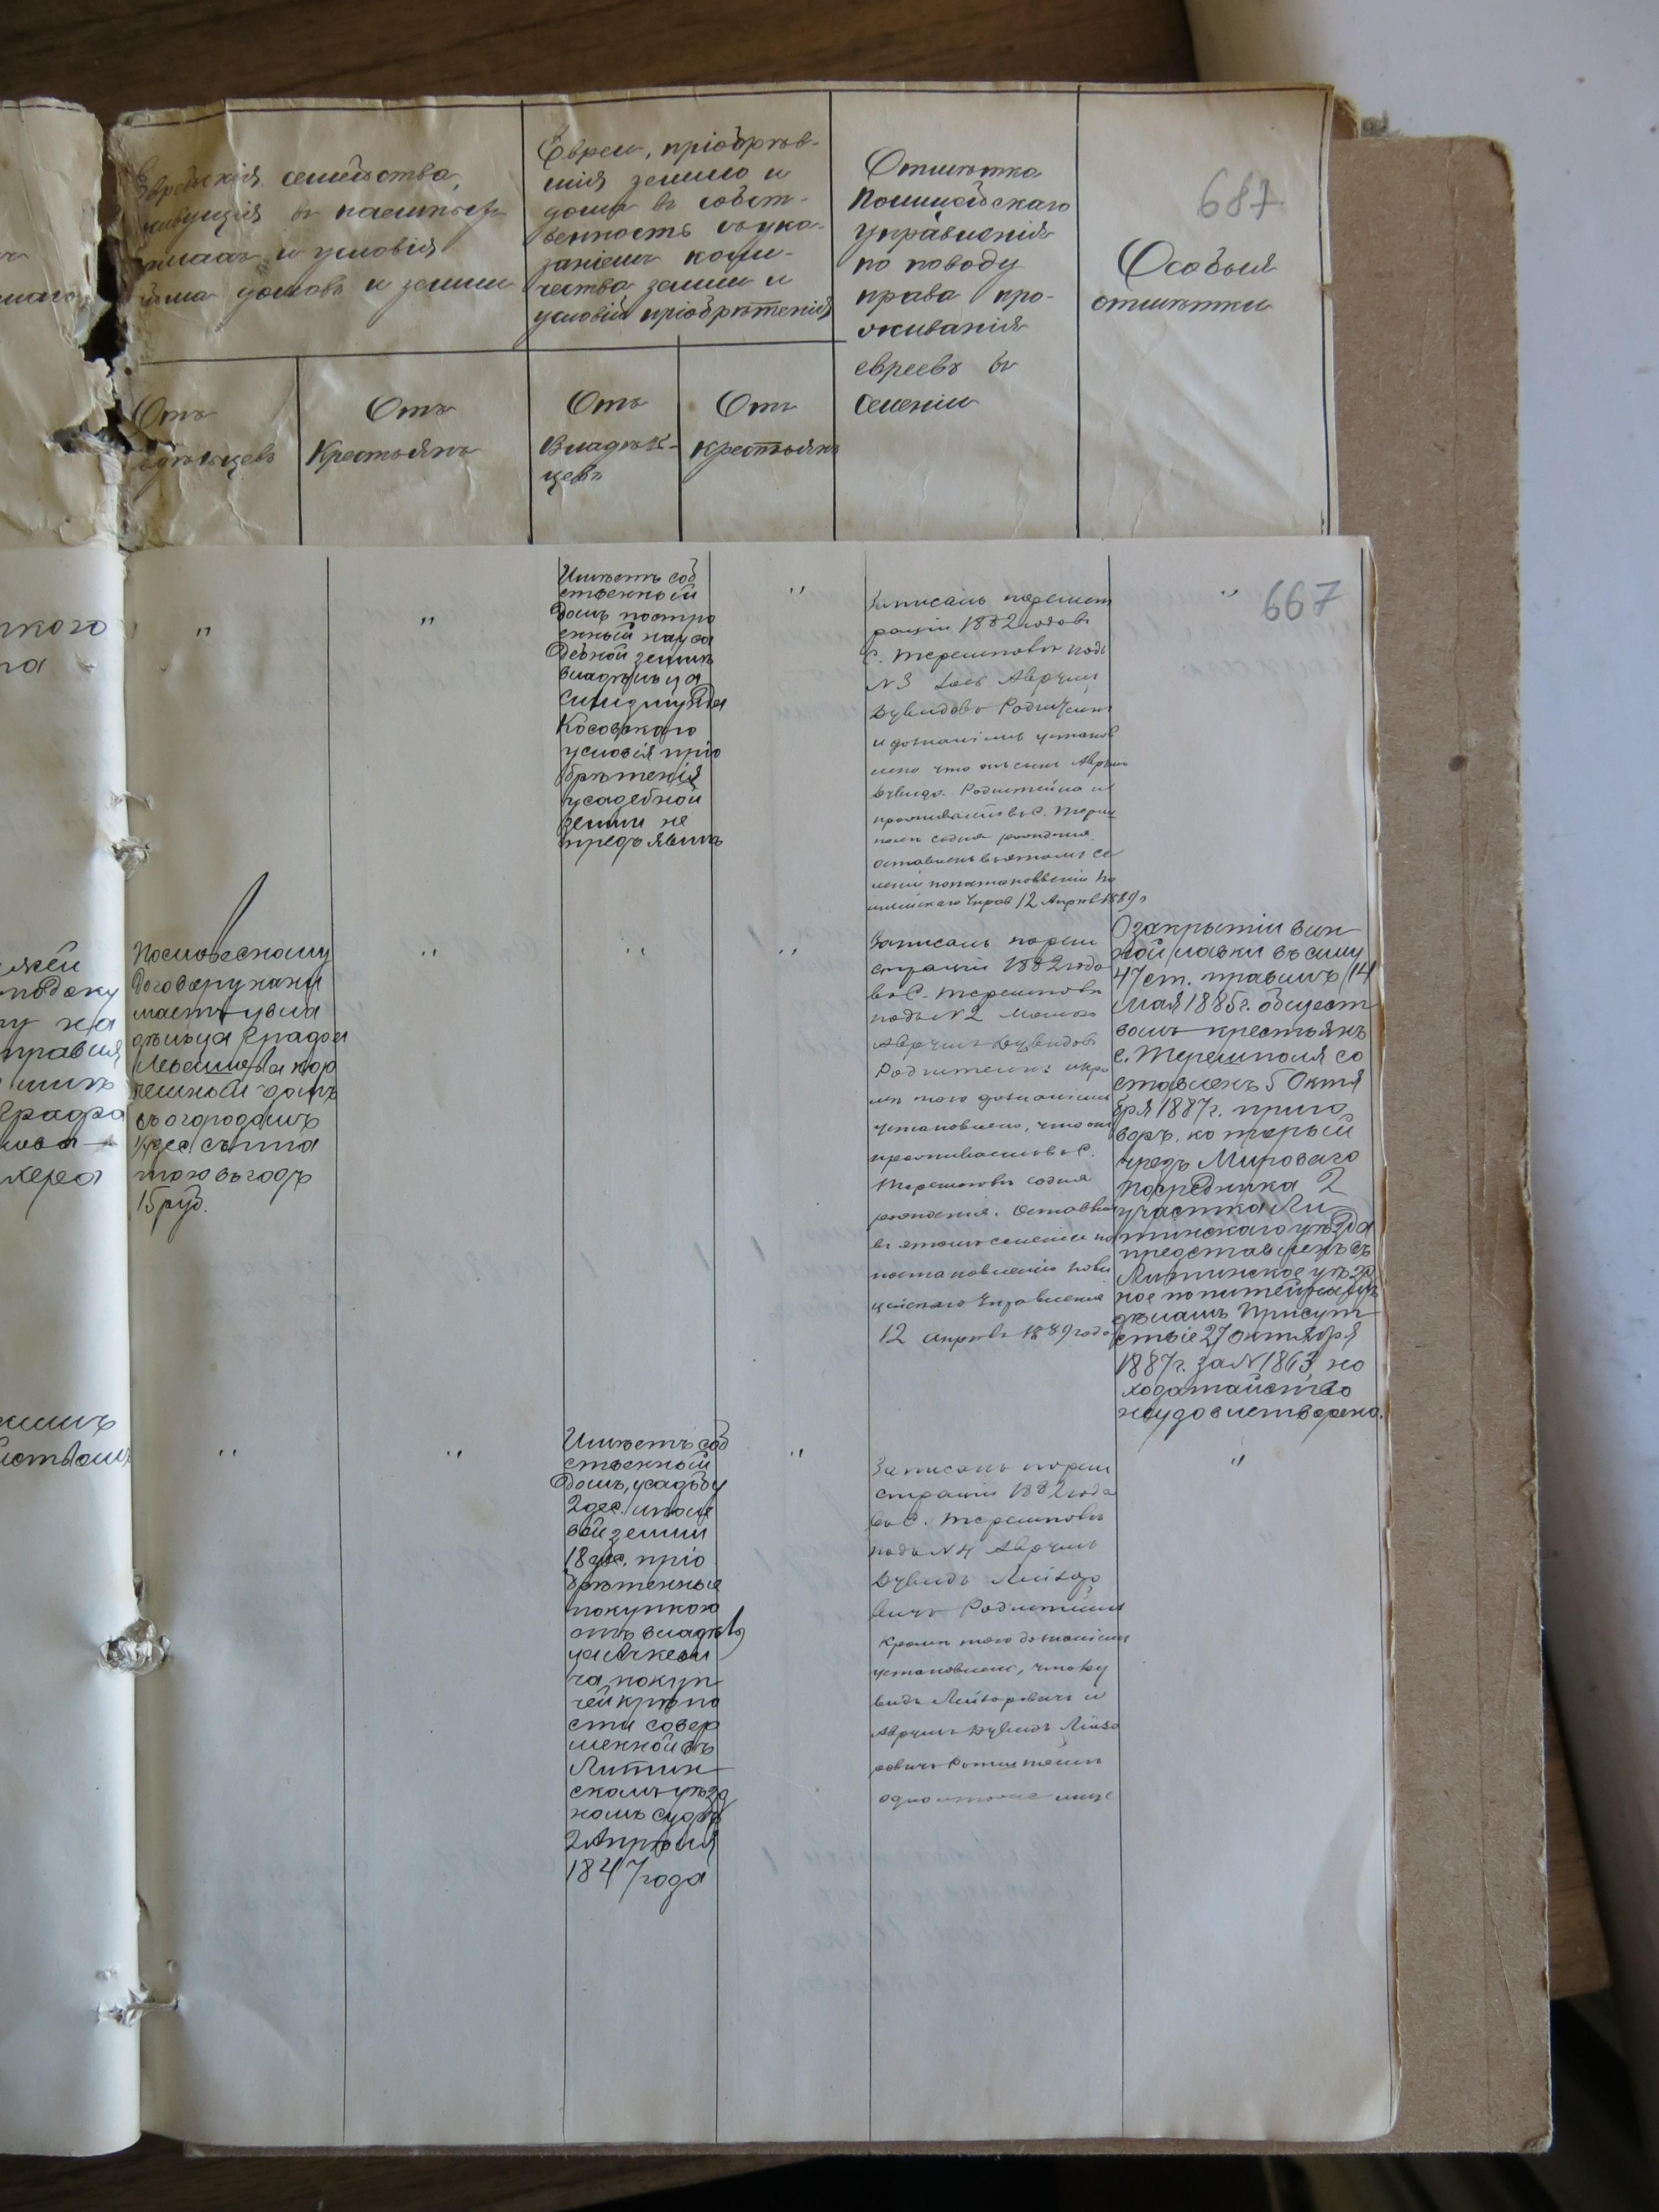 687
Еврейскія семейства,
живущія въ наемныхъ
домахъ и условія
найма домовъ и земли
Отъ
владѣльцевъ
Отъ
Крестьянъ
Евреи, пріобрѣв-
шія землю и
дома въ собст-
венность съ ука-
заніемъ коли-
чества земли и
условій пріобрѣтенія
Отъ
Владѣль-
цевъ
Отъ
крестьянъ
Отмѣтка
Полицейскаго
управленія
по поводу
права про-
живанія
евреевъ въ
селеніи
Особыя
отмѣтки
667
"
"
Имѣетъ соб
ственный
домъ постро
енный на уса
дебной землѣ
владѣльца
Сигизмунда
Косовского
условія пріо
брѣтенія
усадебной
земли не
предъявилъ
"
Записанъ порегист
раціи 1882 года въ
С. Терешполѣ подъ
№3 Аврумъ
Дувидовъ
и дознаніемъ установ
лено что онъ сынъ Аврума
Дувида и
проживаетъ въ С. Тереш
полѣ со дня рожденія
оставленъ въ этомъ се
леніи по постановленію По
лицейскаго Управ 12 Апрѣл 1889 г
"
кого
на
жей
ну на
правля
Графа
хера
Пословесному
договору нани
маетъ у вла
дѣльца Графа
Львашева кор
чемный домъ
съ огородомъ
дес съ пла
тою въ годъ
15 руб.
"
"
"
Записанъ пореги
страціи 1882 года
въ С. Терешполѣ
подъ №2
Аврумъ Дувидовъ
кро
мѣ того дознаніемъ
установлено, что онъ
проживаетъ въ С.
Терешполѣ со дня
рожденія. Оставленъ
въ этомъ селеніи по
постановленію Поли
цейскаго Управленія
12 апрѣля 1889 года
О закрытіи вин
ной лавки въ силу
47 ст. правилъ 14
мая 1885 г. общест
вомъ крестьянъ
с. Терешполя со
ставленъ 5 Октя
бря 1887 г. приго
воръ, который
чрезъ Мироваго
Посредника 2
участка Ли
тинскаго уѣзда
представленъ въ
Литинское уѣзд
ное по питейнымъ
дѣламъ Присут
ствіе 27 октября
1887 г. за №1863, но
ходатайство
неудовлетворено.
"
"
Имѣетъ соб
ственный
домъ, усадьбу
2 дес. и поле
вой земли
18 дес. пріо
брѣтенные
покупкою
отъ владѣль
ца
ча покуп
чей крѣпо
сти совер
шенной въ
Литин
скомъ уѣзд
номъ судѣ
2 Апрѣля
1847 года
"
Записанъ пореги
страціи 1882 года
въ С. Терешполѣ
подъ №4 Аврумъ
Дувидъ Лейзоро
вичъ
Кромѣ того дознаніемъ
установлено, что Ду
видъ Лейзоровичъ и
Аврумъ Дувидъ Лейзо
ровичъ
одно и тоже лице
"